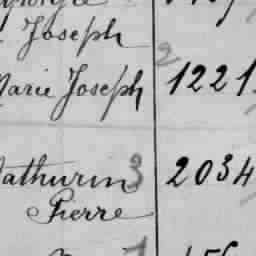 Joseph
2
Marie Joseph 1221
Mathurin 3 2034
Pierre